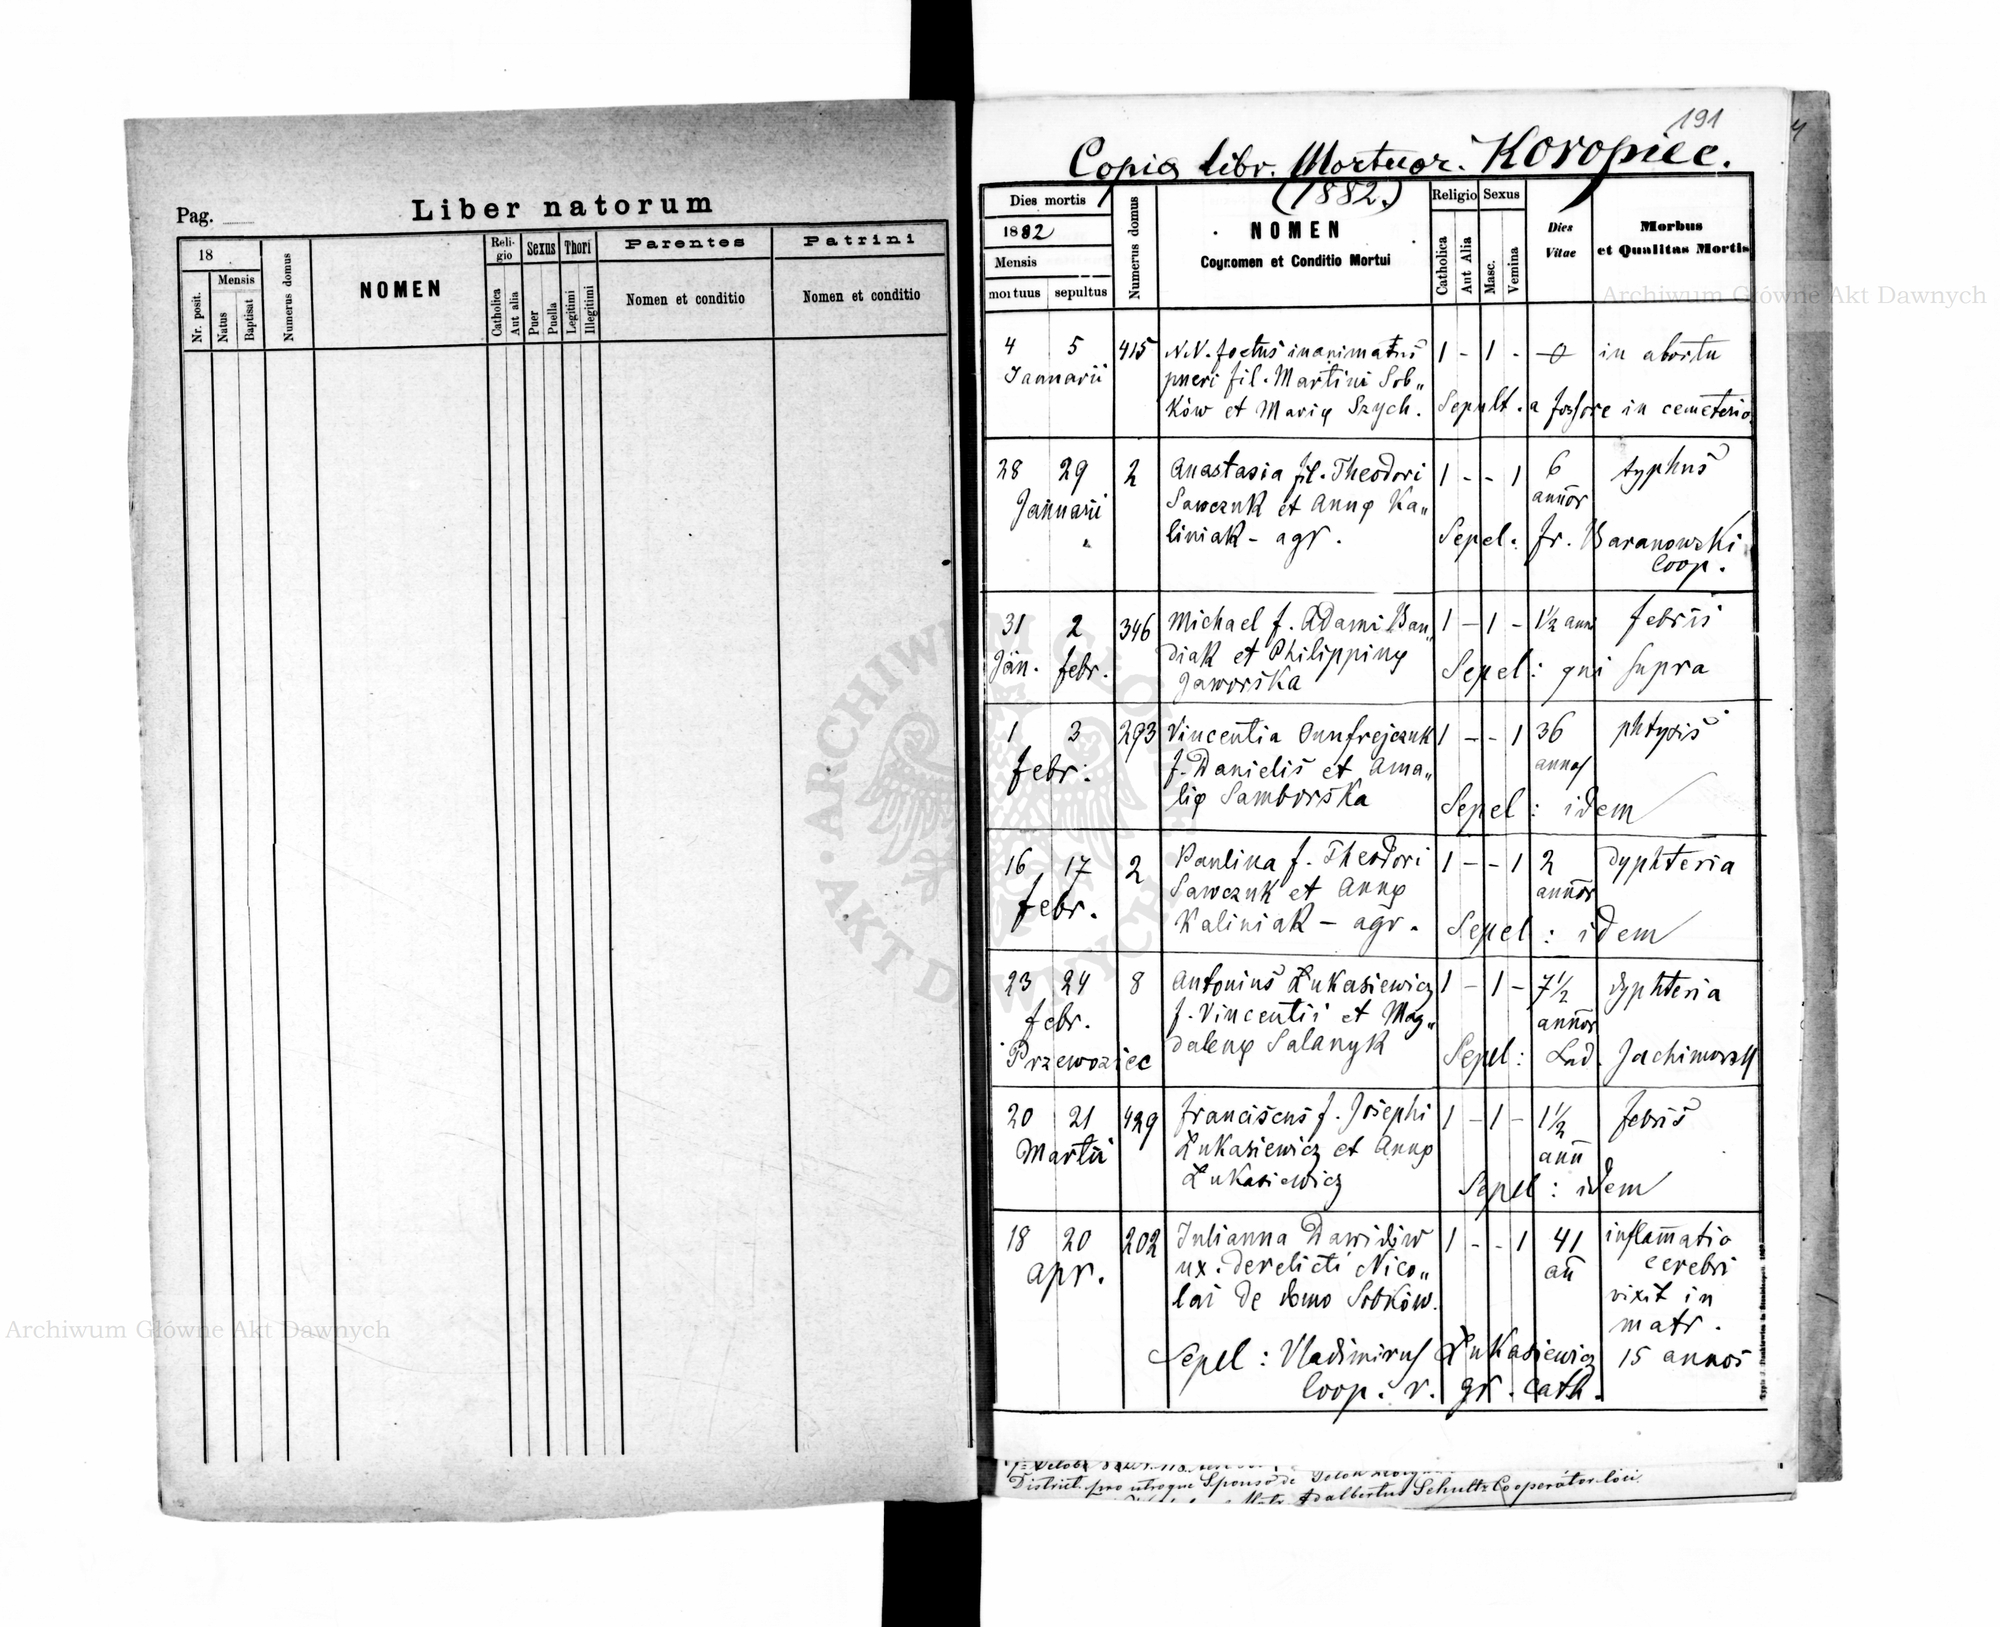 Pag.
Liber natorum
18
Mensis
Nr. posit.
Natus
Baptisat
Numerus domus
NOMEN
Reli-
gio
Catholica
Aut alia
Sexus
Puer
Puella
Thori
Legitimi
Illegitimi
Parentes
Nomen et conditio
Patrini
Nomen et conditio
191
Copia libr. Mortuor. Koropiec.
(1882.)
Dies mortis
1882
Mensis
mortuus sepultus
Numerus domus
NOMEN
Cognomen et Conditio Mortui
Religio
Catholica
Aut Alia
Sexus
Masc.
Vemina
Dies
Vitae
Morbus
et Qualitas Mortis
4 5 415 N.N. foetus inanimatus 1 - 1 - 0 in abortu
Januarii pueri fil. Martini Sob„
ków et Marię Szych. Sepult. a fossore in cemeterio
28 29 2 Anastasia fil. Theodori 1 - - 1 6 typhus
Januarii Sawczuk et Annę Ka„ annor
liniak - agr. Sepel: fr. Baranowski
Coop.
31 2 346 Michael f. Adami Ban„ 1 - 1 - 1½ anni febris
Jan. febr. diak et Philippinę Sepel: qui supra
Jaworska
1 3 293 Vincentia Onufrejczuk 1 - - 1 36 phtysis
febr. f. Danielis et Ama„ annos
lię Samborska Sepel: idem
16 17 2 Paulina f. Theodori 1 - - 1 2 dyphteria
febr. Sawczuk et Annę annor
Kaliniak - agr. Sepel: idem
23 24 8 Antonius Łukasiewicz 1 - 1 - 7½ dyphteria
febr. f. Vincentii et Mag„ annor
Przewoziec dalenę Salanyk Sepel: Lad. Jachimowski
20 21 429 Franciscus f. Josephi 1 - 1 - 1½ febris
Martii Łukasiewicz et Annę ann
Łukasiewicz Sepel: idem
18 20 202 Julianna Dawidów 1 - - 1 41 inflamatio
apr. ux. derelicti Nico„ an cerebri
lai de domo Sobków. vixit in
matr.
Sepel: Vladimirus Łukasiewicz 15 annos
Coop. r. gr. cath.
District. pro utroque Sponso de
Adalbertus Schultz Cooperator loci
Archiwum Główne Akt Dawnych
Archiwum Główne Akt Dawnych
ARCHIWUM GŁÓWNE AKT DAWNYCH